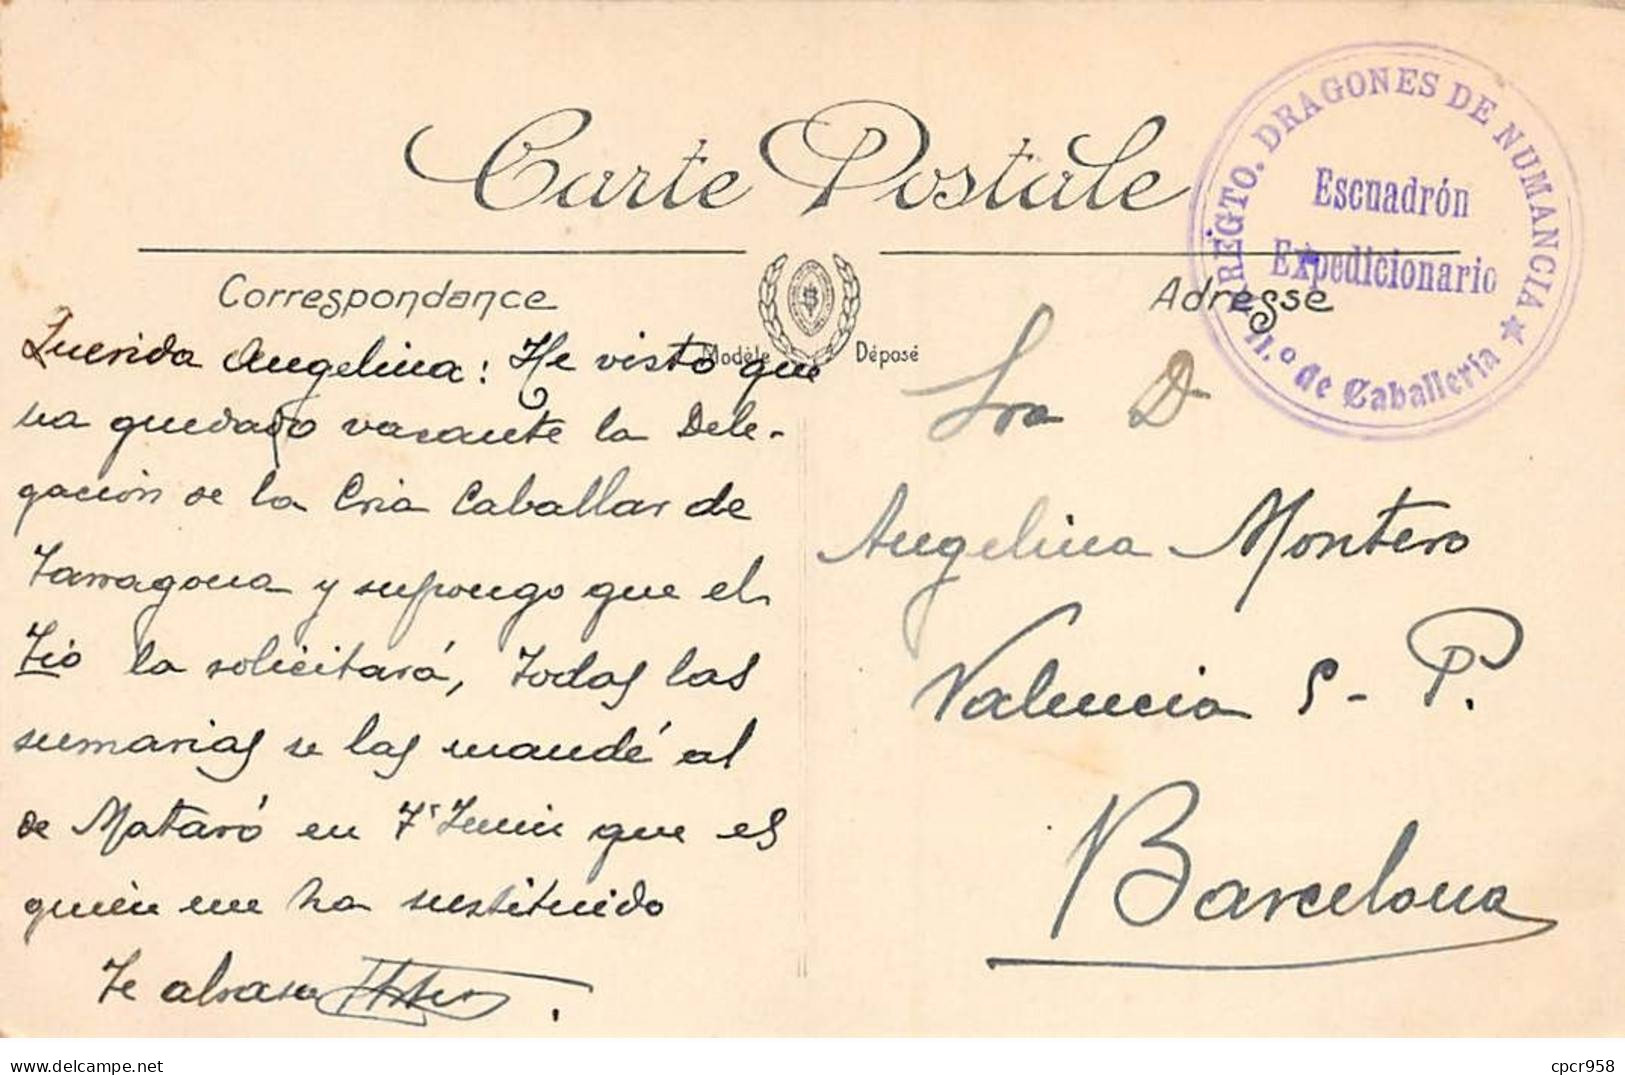 Carte Postale
REGTO. DRAGONES DE NUMANCIA
★ 11.º de Caballeria ★
Escuadrón
Expedicionario
Correspondance
Adresse
Modèle Déposé
Querida Angelina: He visto que
ha quedado vacante la Dele-
gación de la Cria Caballar de
Tarragona y supongo que el
Tio la solicitará, todas las
sumarias se las mandé al
de Mataró en 7 que es
quien me ha sustituido
Te abraza
Sra D
Angelina Montero
Valencia 5 - P.
Barcelona
© cpcr958